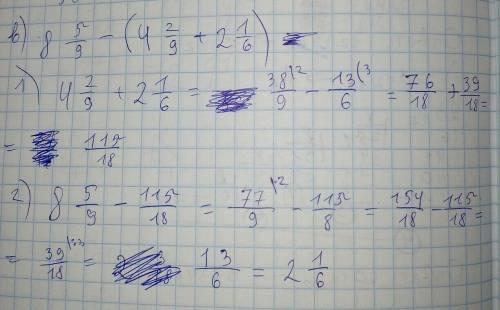 в) 8 5/9 - (4 2/9 + 2 1/6)
1) 4 2/9 + 2 1/6 = 38/9 |2 - 13/6 (3 = 76/18 + 39/18 =
= 115/18
2) 8 5/9 - 115/18 = 77/9 |2 - 115/8 = 154/18 - 115/18 =
= 39/18 = 13/6 = 2 1/6